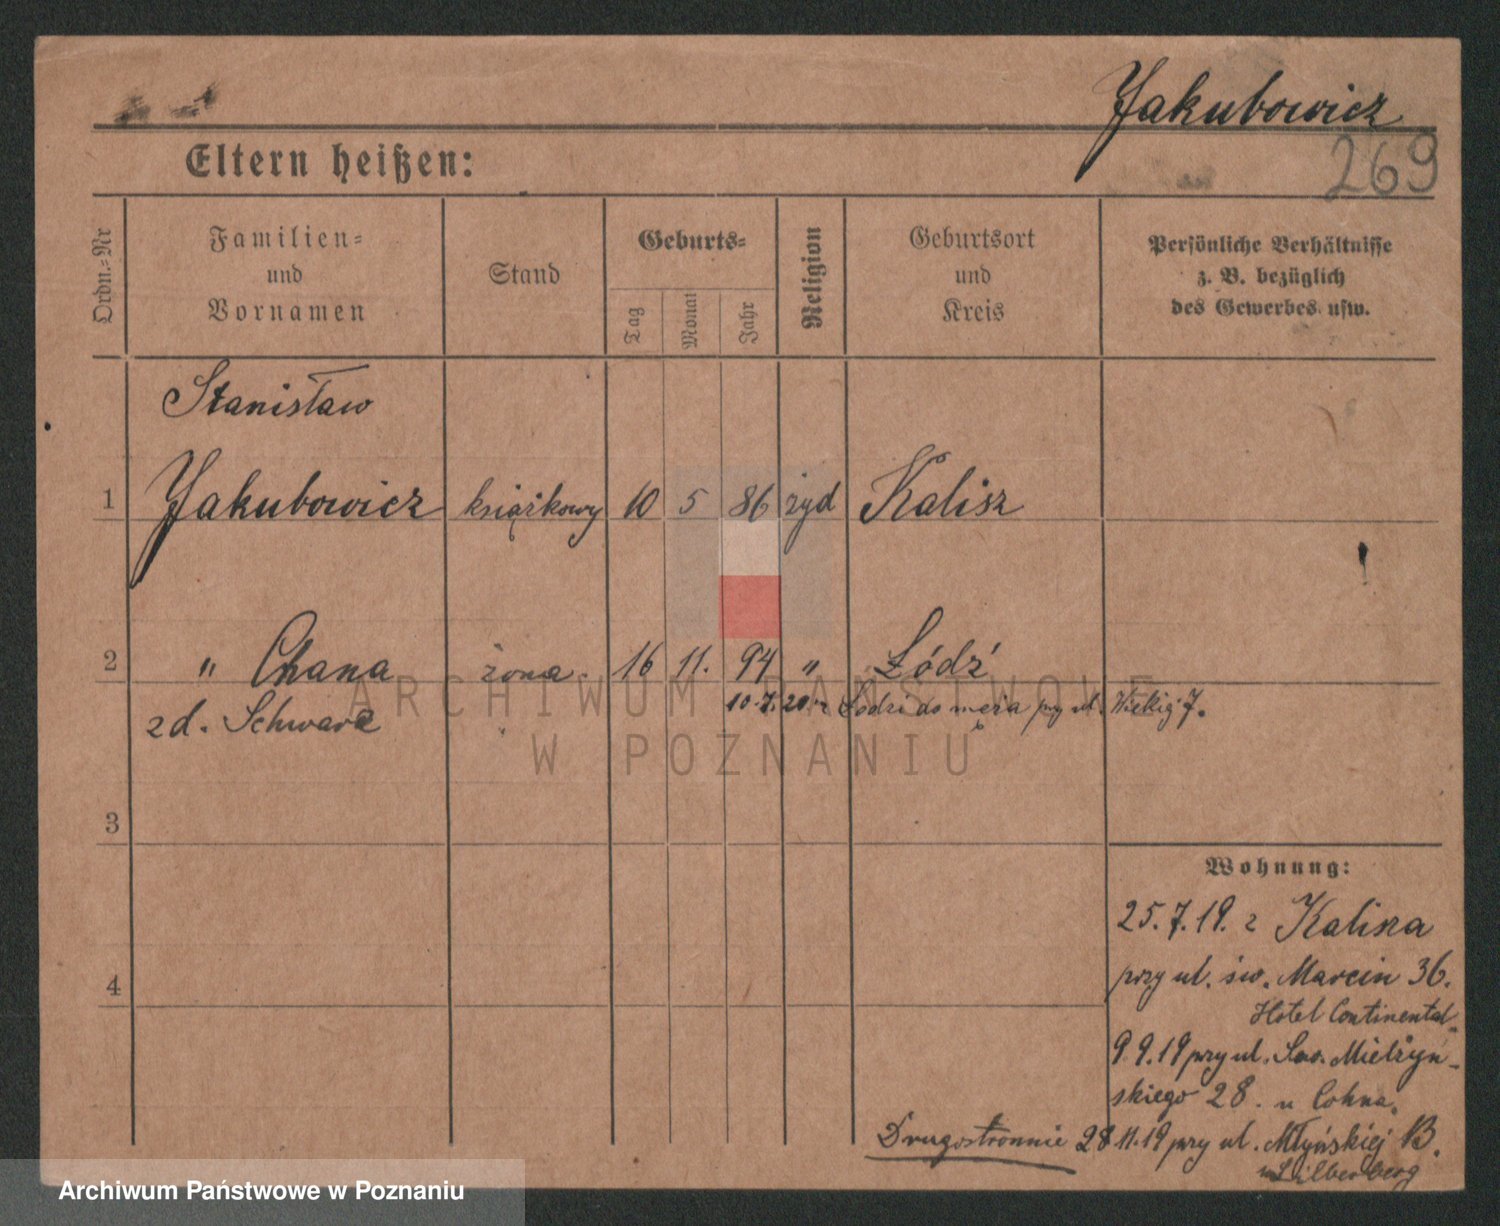 Jakubowicz
269
Eltern heißen:
Ordn.-Nr
Familien-
und
Vornamen
Stand
Geburts-
Tag
Monat
Jahr
Religion
Geburtsort
und
Kreis
Persönliche Verhältnisse
z. B. bezüglich
des Gewerbes usw.
Stanisław
1 Jakubowicz książkowy 10 5 86 żyd Kalisz
2 " Chana żona. 16 11. 94 " Łódź
zd. Schwarz 10.7.20 z Łodzi do męża przy ul. 7.
3
4
Wohnung:
25.7.19. z Kalisza
przy ul. św. Marcin 36.
Hotel Continental.
9.9.19 przy ul. Sew. Mielżyń-
skiego 28. u Cohna.
Drugostronnie 28 11.19 przy ul. Młyńskiej 13.
u Silberberg
ARCHIWUM PAŃSTWOWE
W POZNANIU
Archiwum Państwowe w Poznaniu